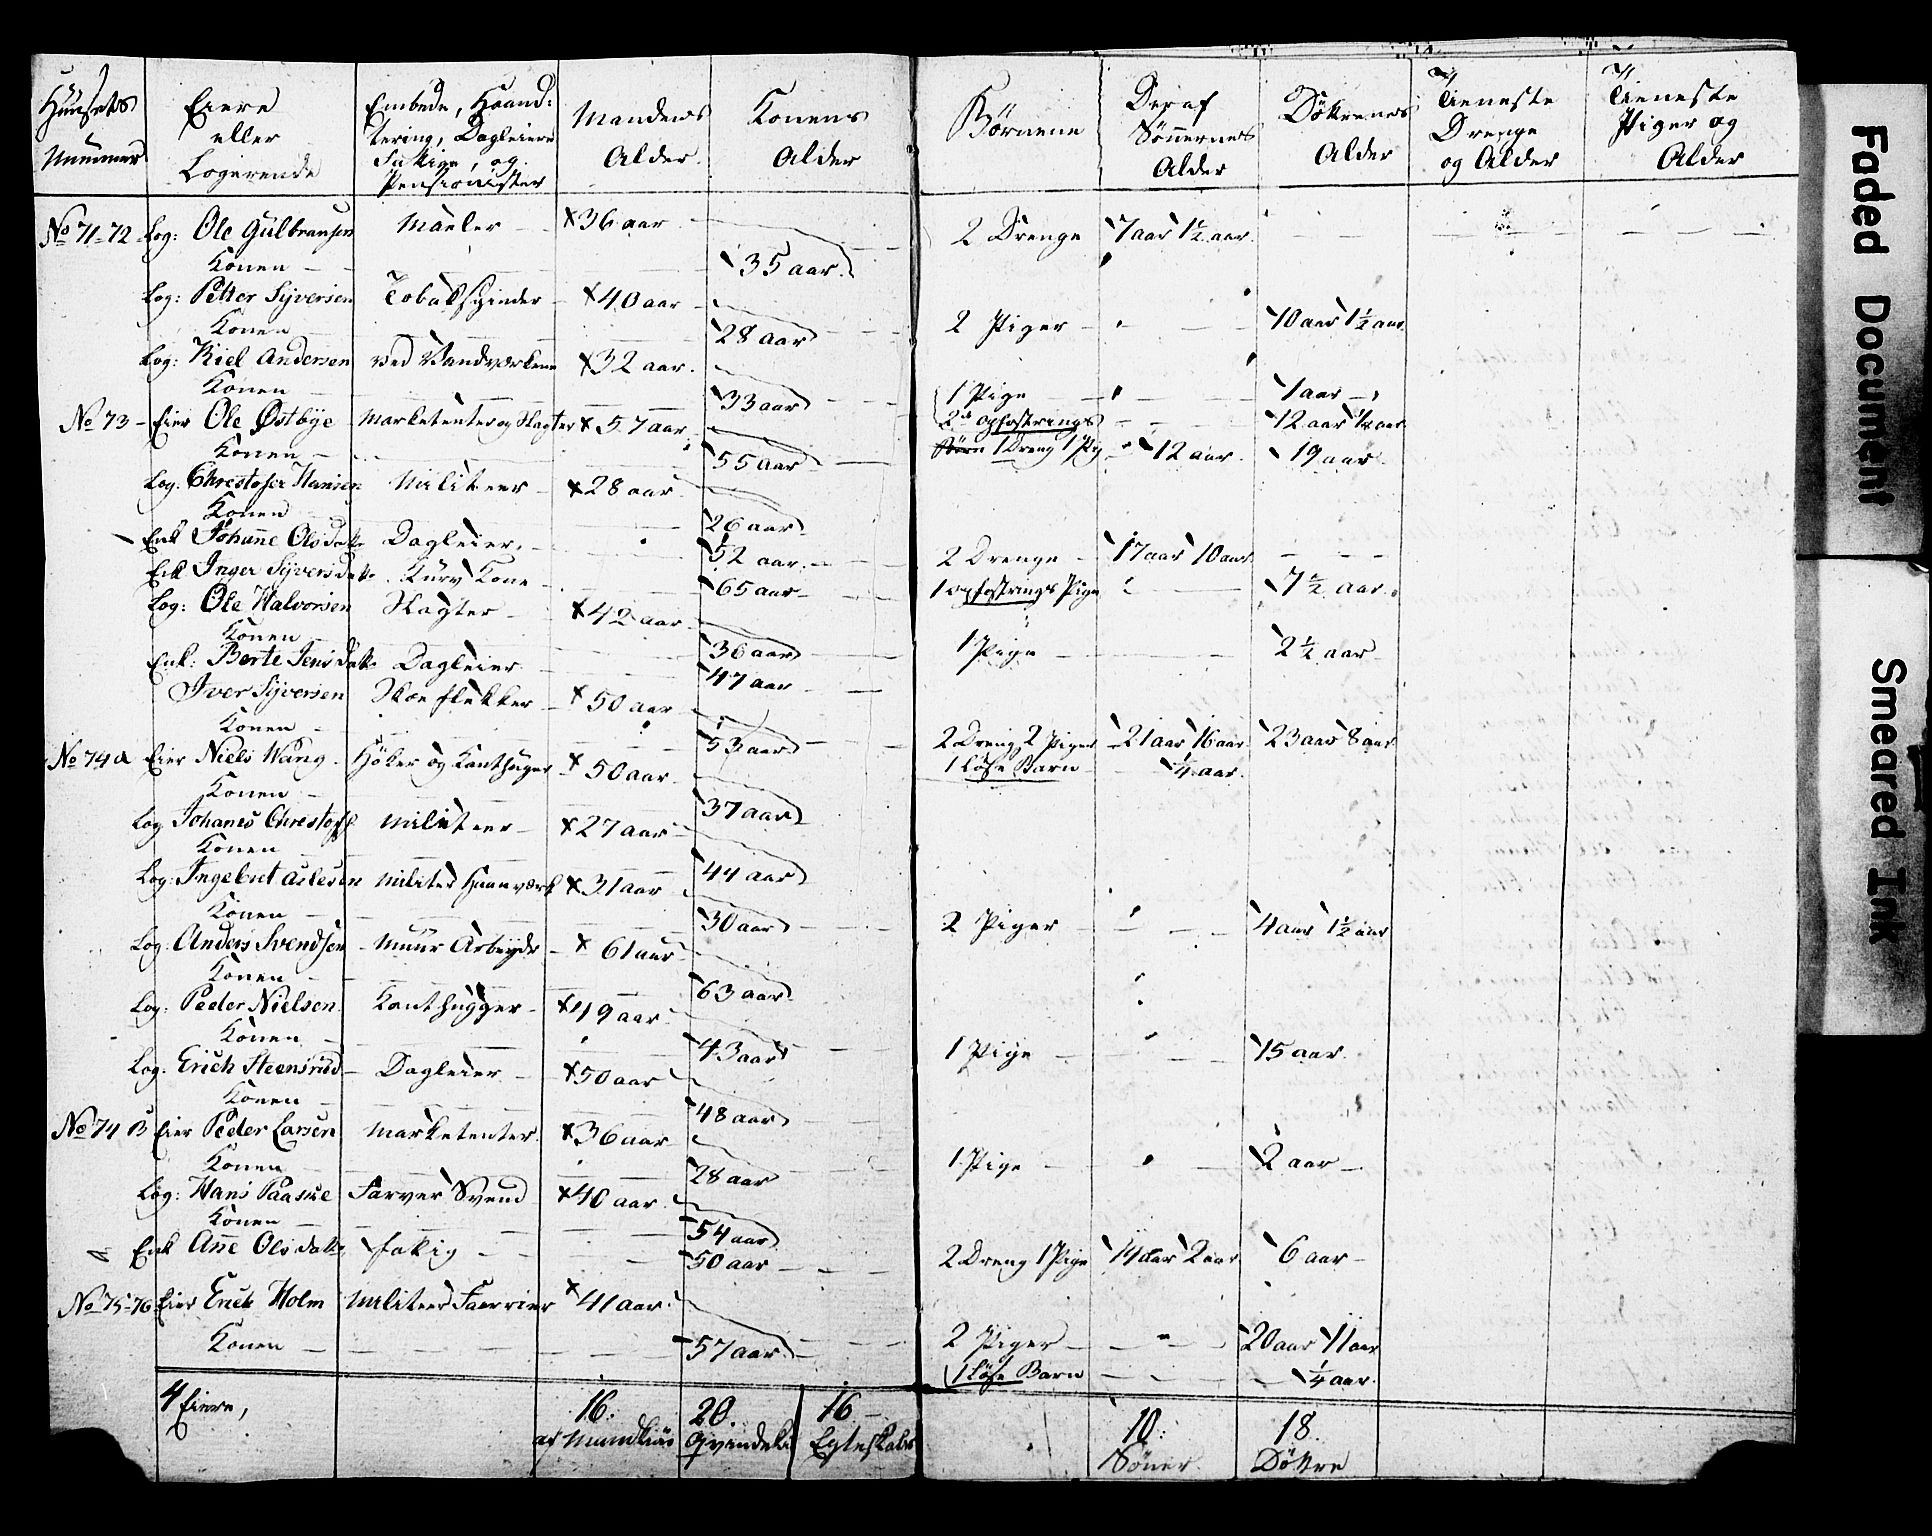 Huusets Nummer | Eiere eller Logerende | Embede, Haand: tering, Dagleiere Fattige, og Pensionister | Mandens Alder. | Konens Alder | Børnene | Deraf Sønnernes Alder | Døttrenes Alder | Tieneste Drenge og Alder | Tieneste Piger og Alder
No 71-72 Log: Ole Gulbransen | Maeler | 36 aar | 2 Drenge | 7 aar 1½ aar
Konen | 35 aar
Log: Petter Syversen | Tobakspinder | 40 aar
Konen | 28 aar | 2 Piger | 10 aar 1½ aar
Log: Niel Andersen | ved Vandværkene | 32 aar
Konen | 33 aar | 1 Pige | 1 aar
No 73 Eier Ole Østbye | Marketenter og Slagter | 57 aar | 2de opfostrings | 12 aar ¼ aar
Konen | 55 aar | Børn 1 Dreng 1 Pig | 12 aar | 19 aar
Log: Christofer Hansen | Militær | 28 aar
Konen | 26 aar
Enk Johanne Olsdatt | Dagleier | 52 aar | 2 Drenge | 17 aar 10 aar
Enk Inger Syversdatt | Kurv Kone | 65 aar | 1 opfostrings Pige | 7½ aar
Log: Ole Halvorsen | Slagter | 42 aar
Konen | 36 aar | 1 Pige | 2½ aar
Enk: Berte Jensdatt | Dagleier | 47 aar
Iver Syversen | Skoe flikker | 50 aar
Konen | 53 aar | 2 Dreng 2 Piger | 21 aar 16 aar | 23 aar 8 aar
No 74 a Eier Niels Wang | Høker og Kanthugger | 50 aar | 1 Løse Barn | ¼ aar
Konen | 37 aar
Log Johanes Christoff | Militeer | 27 aar
Konen | 44 aar
Log: Ingebret Aslesen | Militer Haanværk | 31 aar
Konen | 30 aar | 2 Piger | 4 aar 1½ aar
Log: Anders Svendsen | Muur Arbeyde | 61 aar
Konen | 63 aar
Log: Peder Nielsen | Kanthugger | 49 aar
Konen | 43 aar | 1 Pige | 15 aar
Log: Erich Steensrud | Dagleier | 50 aar
Konen | 48 aar
No 74 B Eier Peder Larsen | Marketenter | 36 aar
Konen | 28 aar | 1 Pige | 2 aar
Log: Hans Paaske | Farver Svend | 40 aar
Konen | 54 aar
Enk Anne Olsdatt | fatig | 50 aar | 2 Dreng 1 Pige | 14 aar 2 aar | 6 aar
No 75-76 Eier Erich Holm | Militeer | 41 aar
Konen | 57 aar | 2 Piger | 20 aar 11 aar
1 Løse Barn | ¼ aar
4 Eiere, | 16. af Mandkiøn | 20. Qvindekiøn | 16 Egteskaber | 10. Sønner | 18. Døttre
Faded Document
Smeared Ink